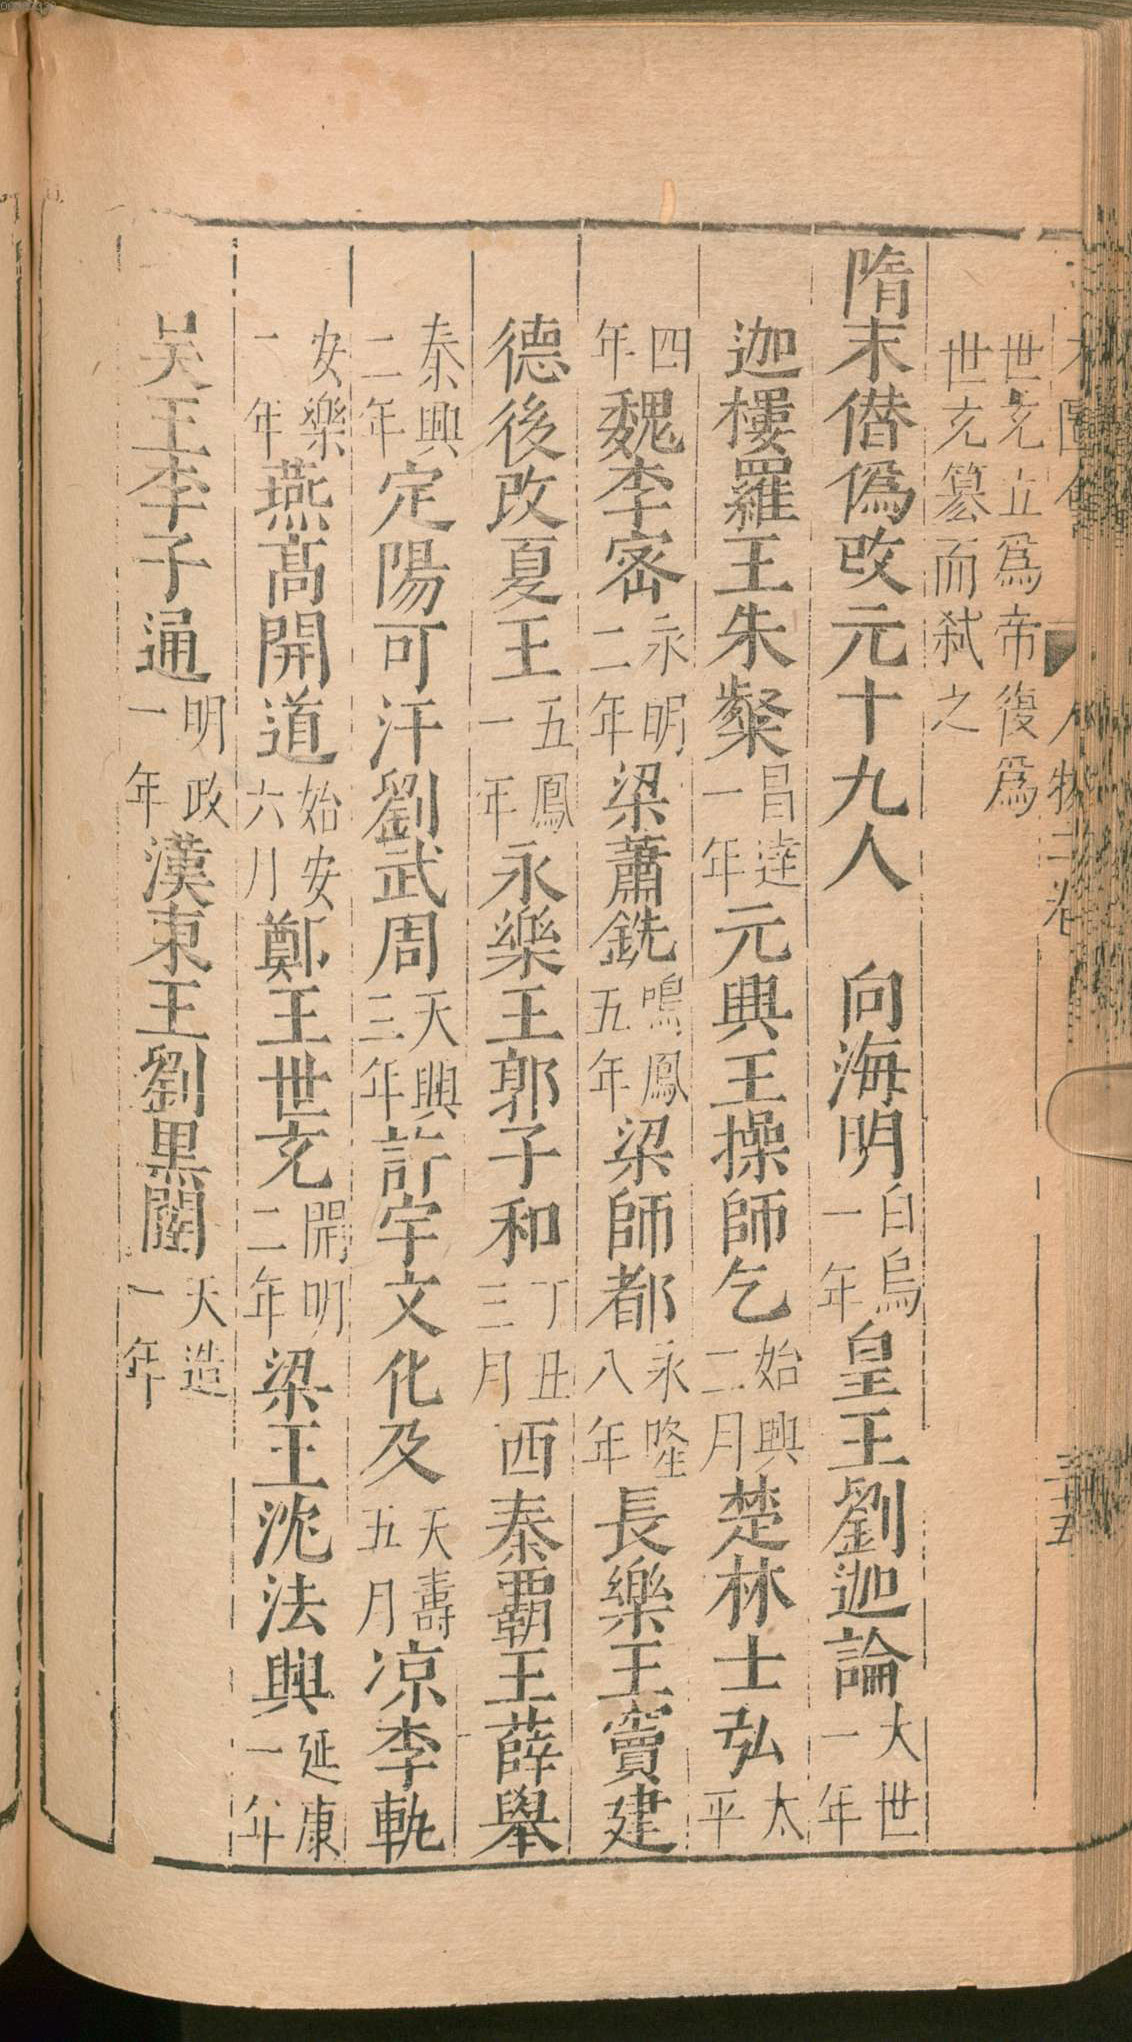 世充立爲帝復爲
世充篡而弑之
隋末僣僞改元十九人　向海明白烏一年皇王劉迦論大世一年
迦樓羅王朱粲昌達一年元興王操師乞始興二月楚林士弘太平
四年魏李密永明二年梁蕭銑鳴鳳五年梁師都永隆八年長樂王竇建
德後改夏王五鳳一年永樂王郭子和丁丑三月西秦覇王薛舉
秦興二年定陽可汗劉武周天興三年許宇文化及天壽五月凉李軌
安樂一年燕高開道始安六月鄭王世充開明二年梁王沈法興延康一年
吴王李子通明政一年漢東王劉黒闥天造一年